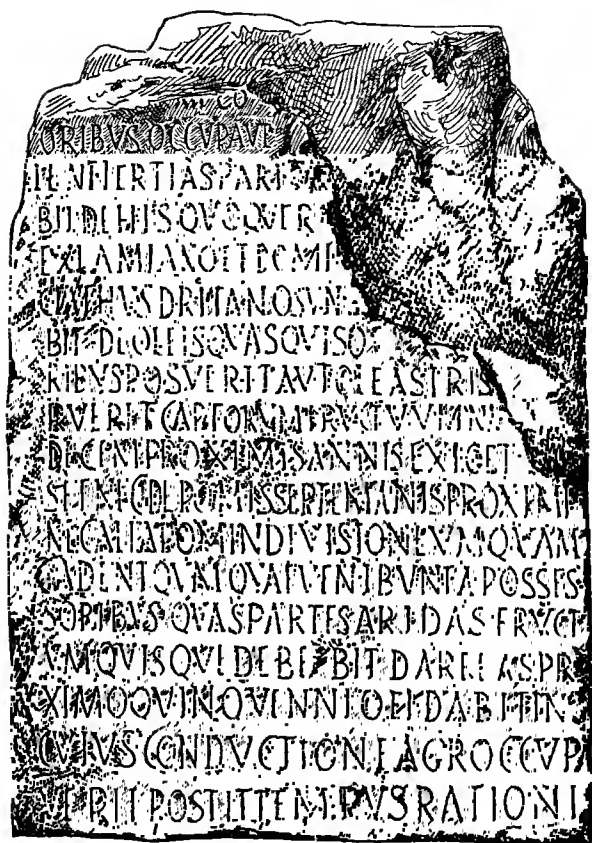 CO
ORIBVS OCCVPAVE
IENTI ERTIAS PARTE
BIT DE HIS QVOQVE R
EX LAMIANO ET DOMI
CTAE THVSDRITANO SVN
BIT DE OLEIS QVAS QVISQ
RIBVS POSVERIT AVT OLEASTRIS
ERVERIT CAPTORVM FRVCTVVM N
DECEM PROXIMIS ANNIS EXIGET
SET NEC DE POMIS SEPTEM ANNIS PROXIMI
NEC ALIA POM IN DIVISIONE VMQVAM
CADENT QVAM QVAE VENIBVNT A POSSES
SORIBVS QVAS PARTES ARIDAS FRVCT
VVM QVISQVE DEBEBIT DARE EAS PR
XIMO QVINQVENNIO EI DABIT IN
CVIVS CONDVCTIONE AGR OCCVPA
VERIT POST IT TEMPVS RATIONI